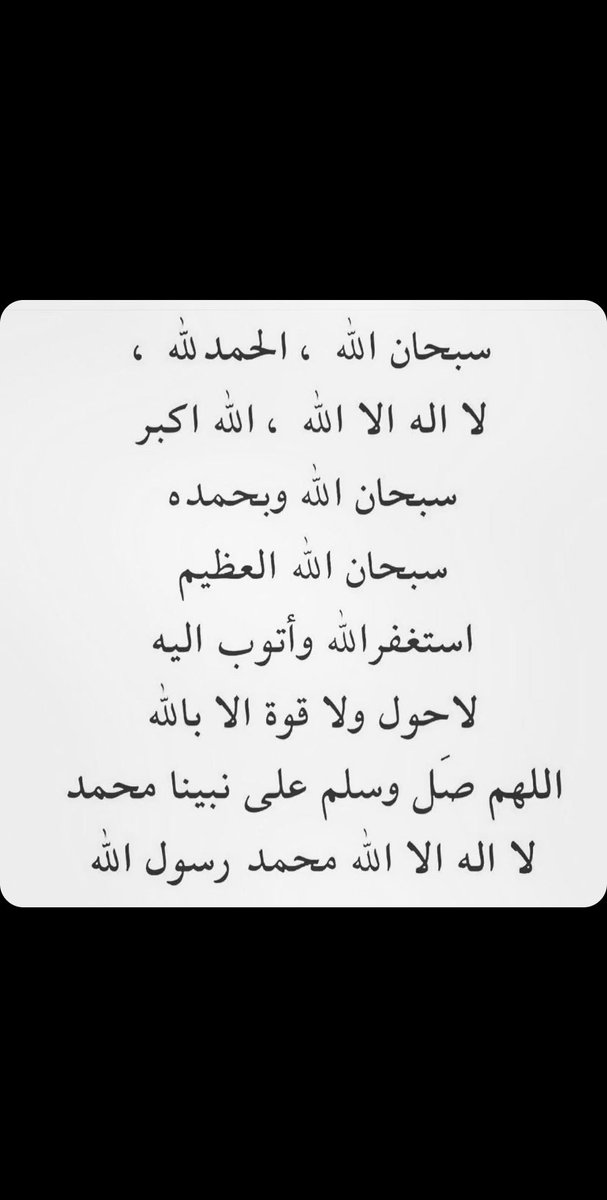 سبحان الله ، الحمدلله ،
لا اله الا الله ، الله اكبر
سبحان الله وبحمده
سبحان الله العظيم
استغفرالله وأتوب اليه
لاحول ولا قوة الا بالله
اللهم صَل وسلم على نبينا محمد
لا اله الا الله محمد رسول الله